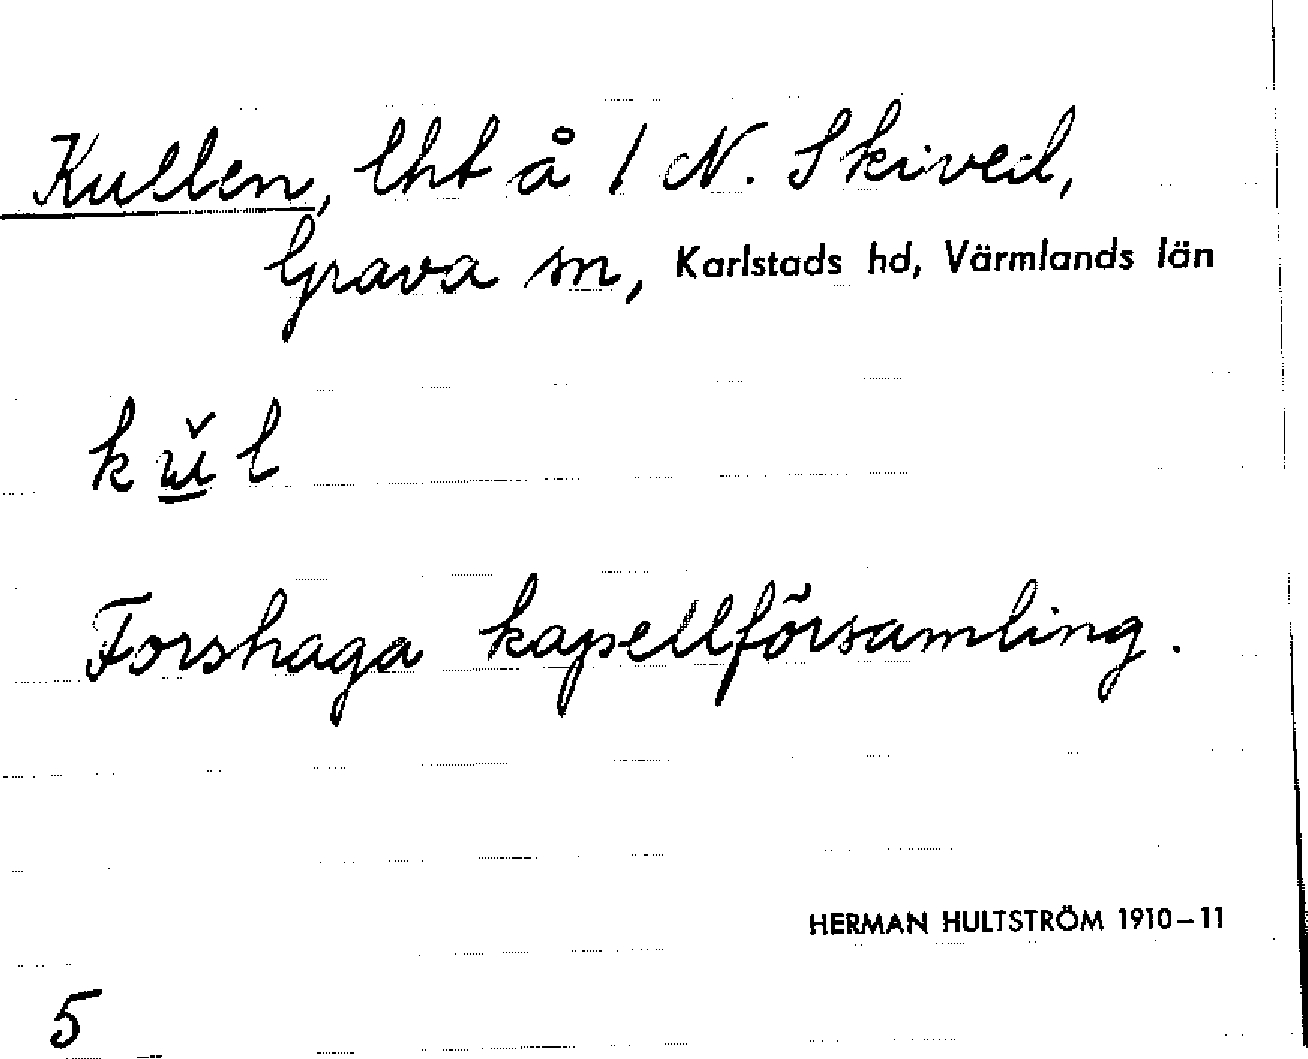 Kullen, lht å 1 N. Skived,
Grava sn, Karlstads hd, Värmlands län
kŭl
Forshaga kapellförsamling.
HERMAN HULTSTRÖM 1910–11
5